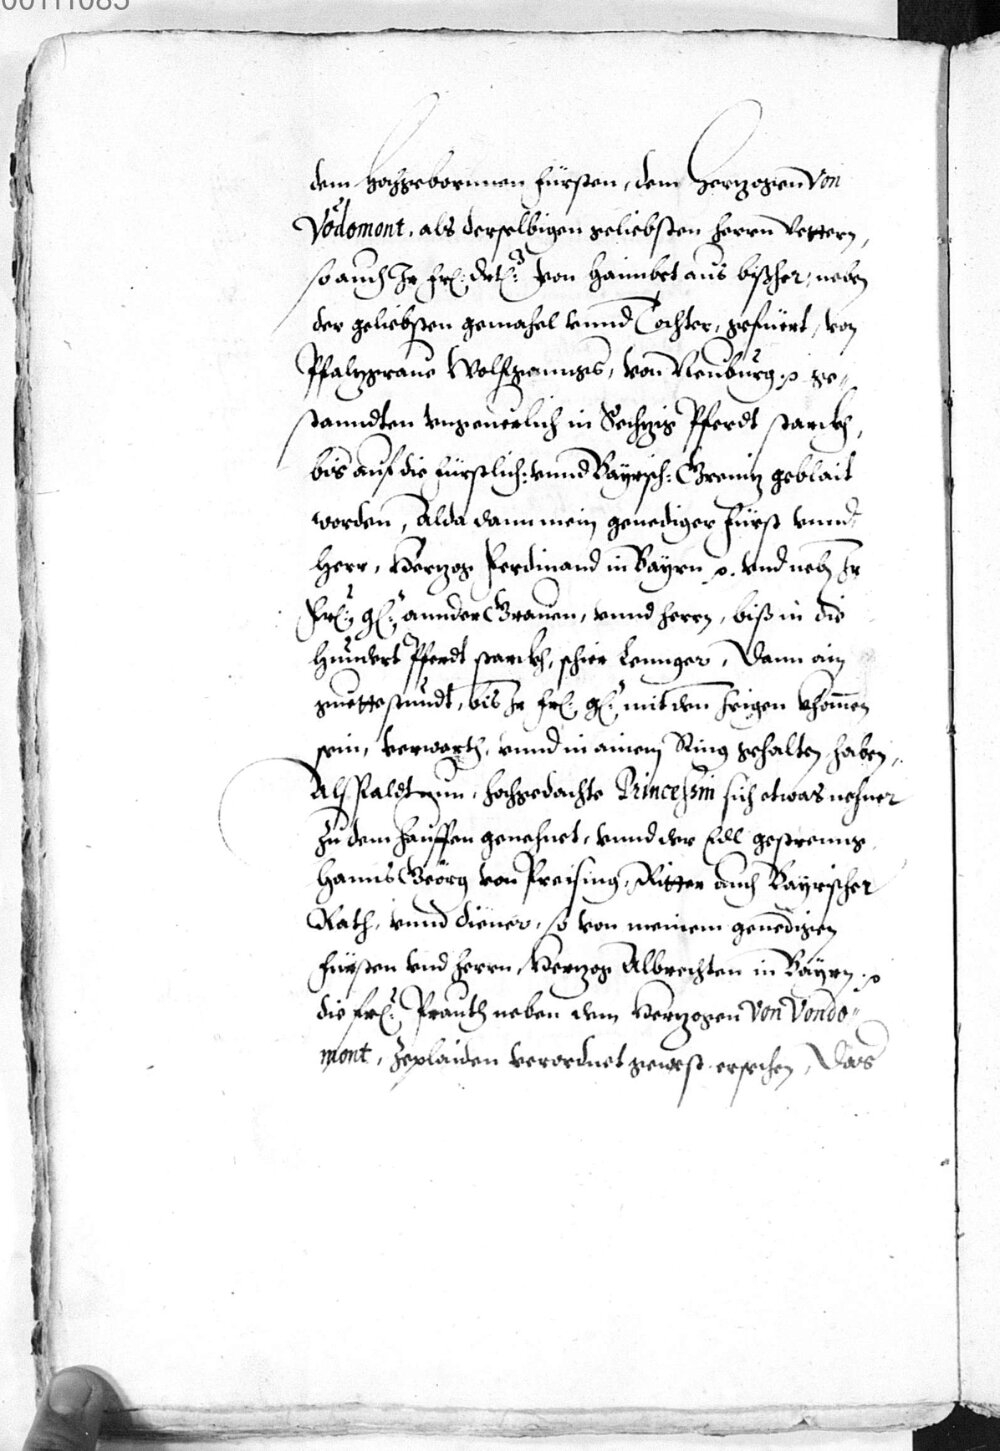 00111085
dem hochgebornnen Fürsten, dem Hertzogen Von
Vodemont, als derselbigen geliebsten herrn Vettern,
so auch Ir frl: drl: von haimbet aus bißher, neben
der geliebsten gemahel vnnd Tochter, gefüert, von
Pfaltzgraue Wolfgannges, von Neuburg p ge„
sanndten vngeuerlich in Sechzig Pferdt starckh,
bis auf die Fürstlich: vnnd Bayrisch: Grenitz geblait
worden, Alda dann mein genediger Fürst vnnd
Herr, Hertzog Ferdinand in Bayrn p. vnd neben Ir
frl: gl: annder Grauen, vnnd herrn, biß in die
Hundert Pferdt starckh, schier lennger, dann ain
guette stundt, bis Ir frl: gl: mit den Irigen khommen
sein, verwarth, vnnd in ainem Ring gehalten haben,
Als Paldt nun, hochgedachte Princessin sich etwas neher
zu dem hauffen genehnet, vnnd der Edl gestrenng
Hanns Geörg von Preising, Ritter auch Bayrischer
Rath, vnnd diener, so von meinem genedigen
Fürsten vnd herrn, Hertzog Albrechten in Bayrn p
die frl: Prauth neben dem Hertzogen Von Vondo„
mont, zeplaiden verordnet gewest ersehen, Das